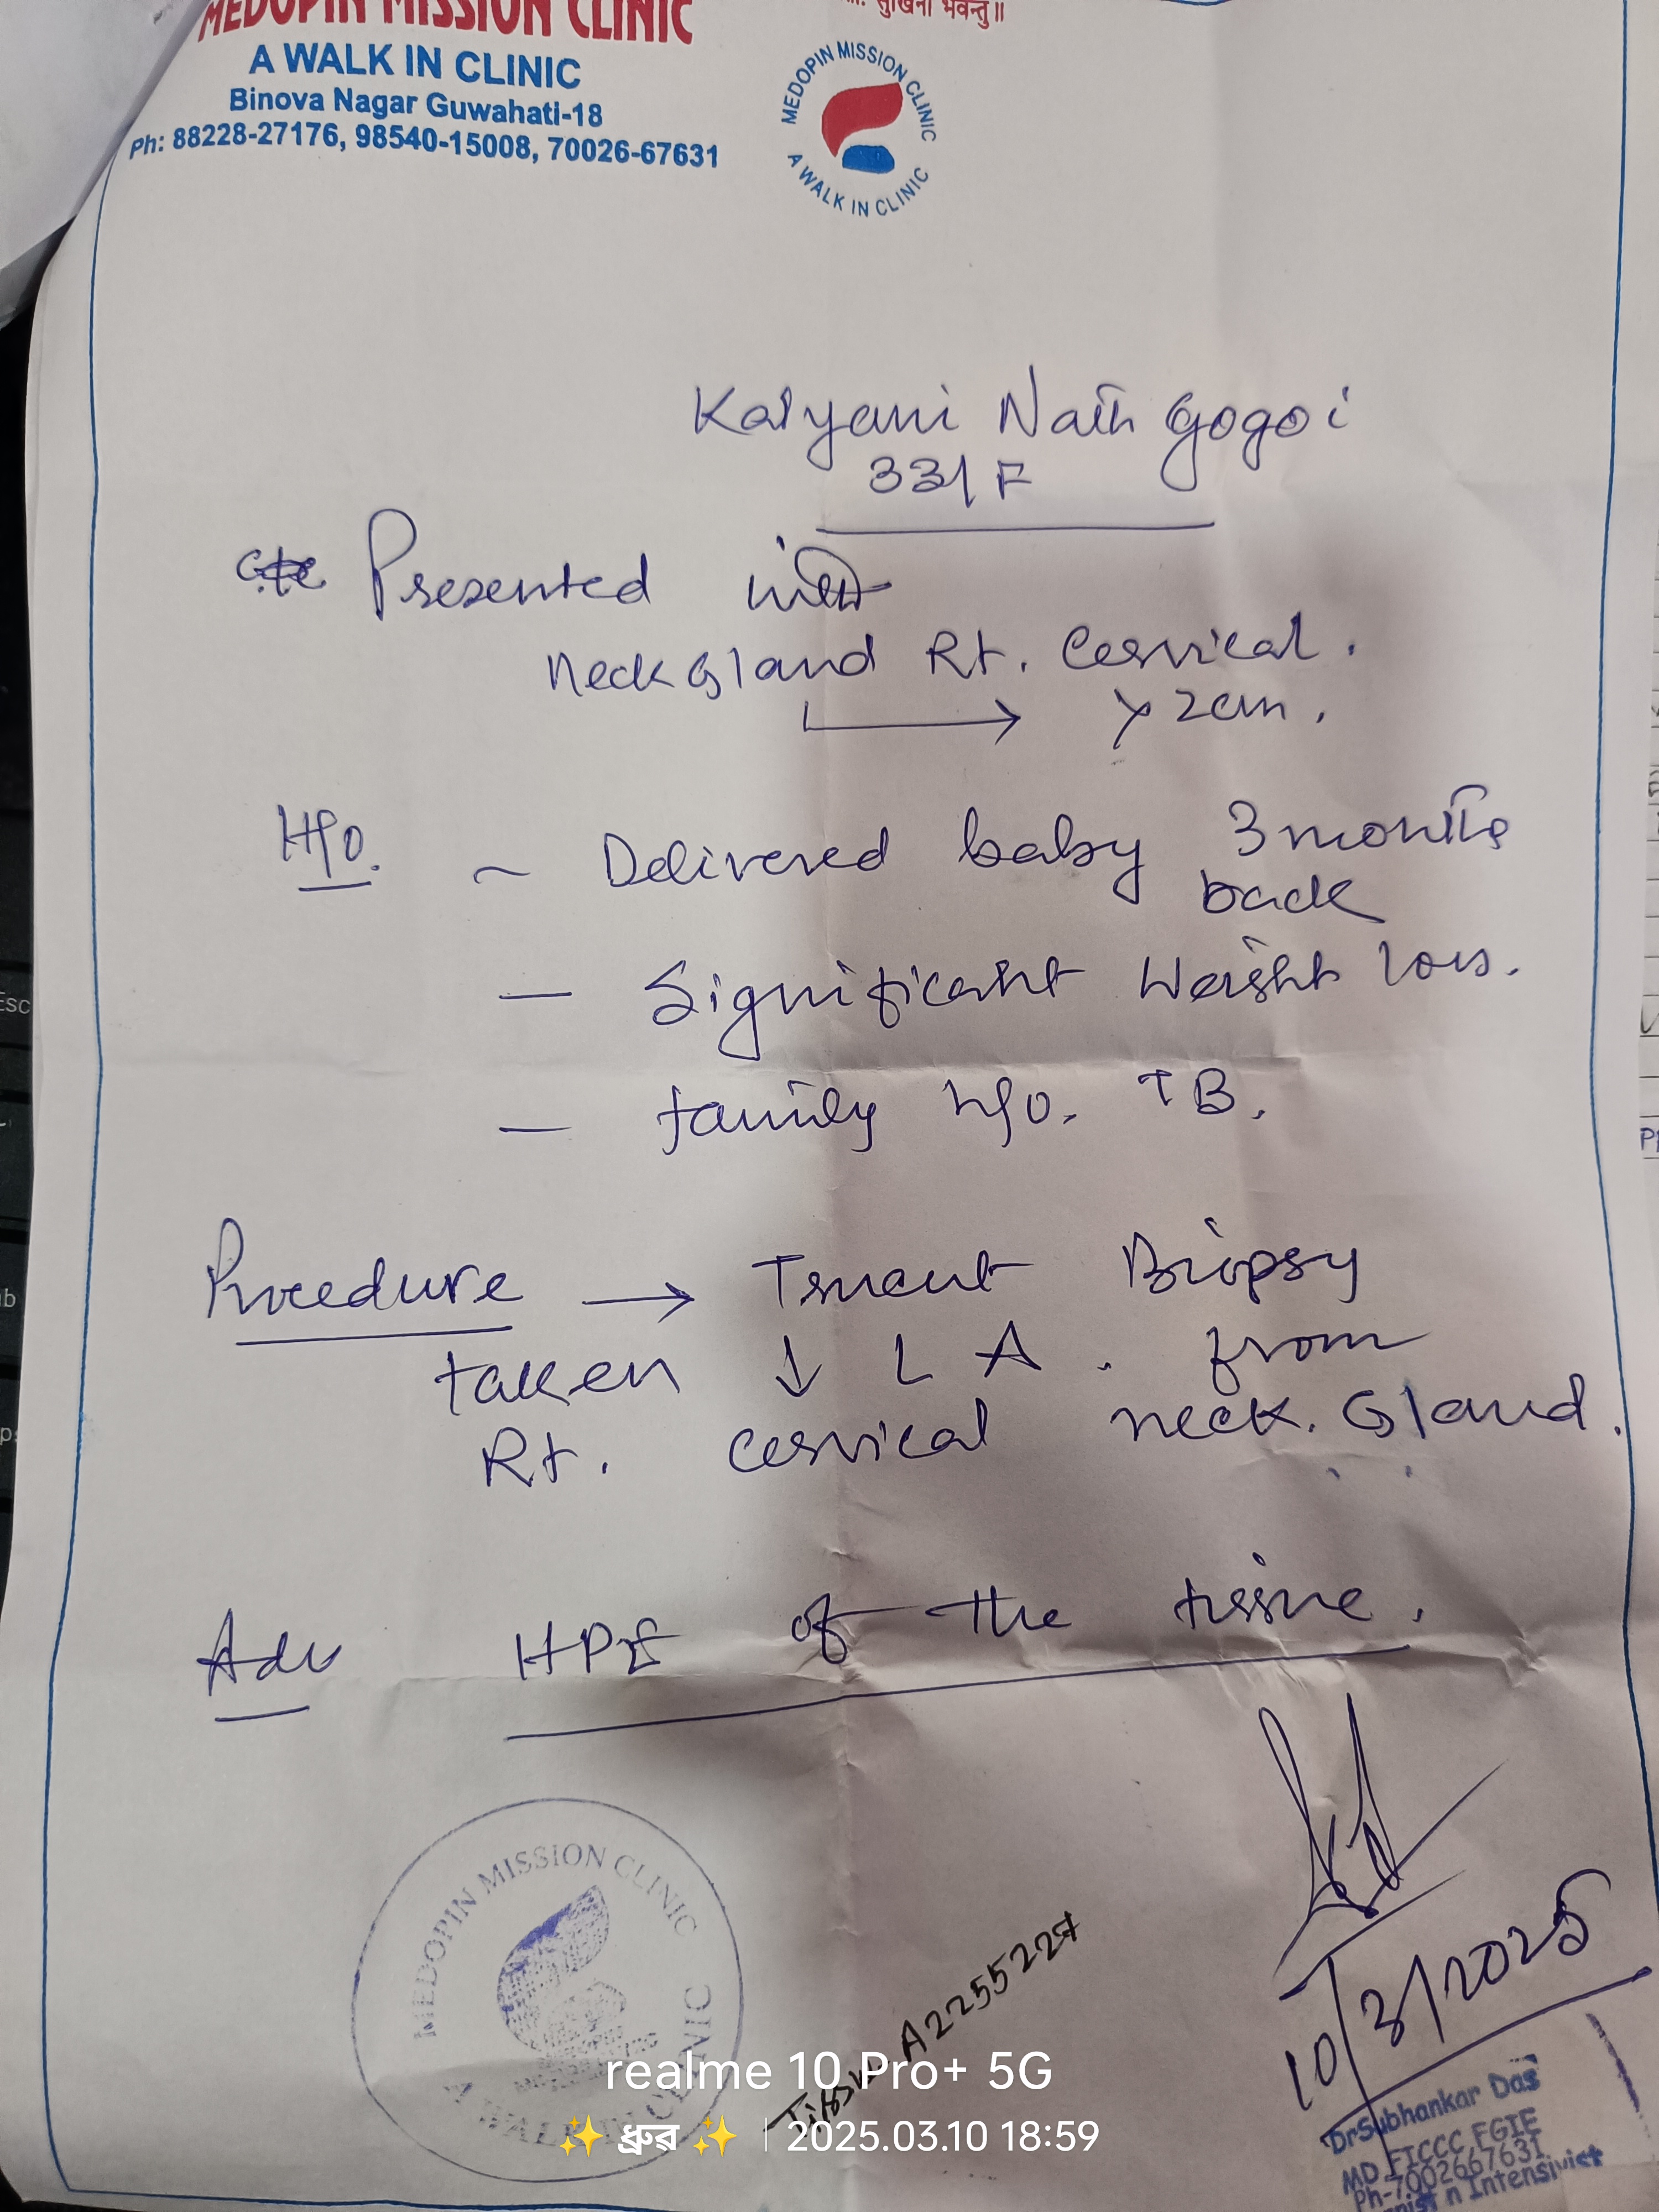 MEDOPIN MISSION CLINIC
सुखिनो भवन्तु॥
A WALK IN CLINIC
Binova Nagar Guwahati-18
Ph: 88228-27176, 98540-15008, 70026-67631
MEDOPIN MISSION CLINIC
A WALK IN CLINIC
Kalyani Nath Gogoi
33/F
Presented with
Neck Gland Rt. Cervical.
> 2cm.
H/o. ~ Delivered baby 3 months
back
— Significant Weight loss.
— family h/o. TB.
Procedure → Trucut Biopsy
taken ↓ L A. from
Rt. Cervical neck. Gland.
Adv HPE of the tissue.
10/3/2025
MEDOPIN MISSION CLINIC
A WALK IN CLINIC
Tissue A2255227
Dr Subhankar Das
MD FICCC FGIE
Ph-7002667631
n Intensivist
Esc
realme 10 Pro+ 5G
✨ ধ্রুৱ ✨ | 2025.03.10 18:59